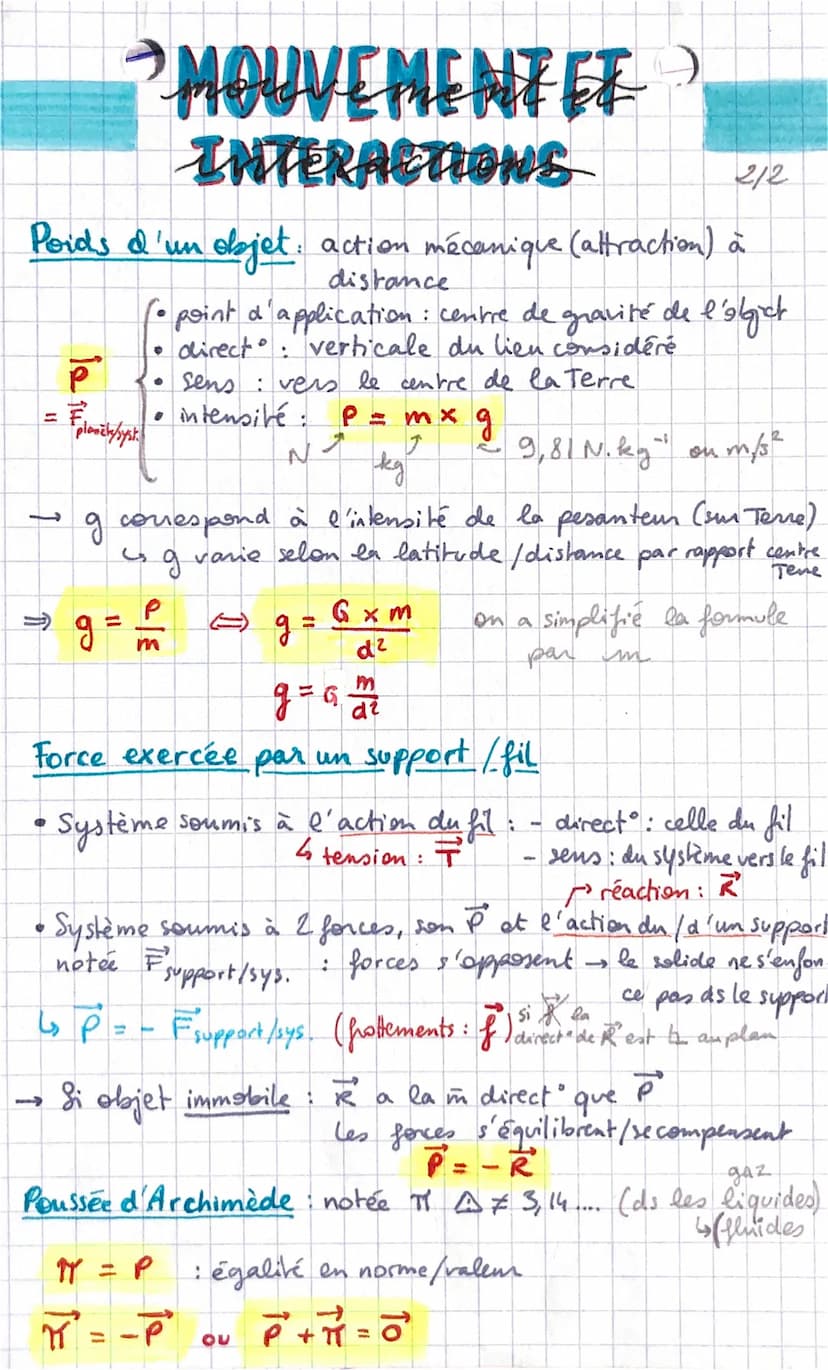 MOUVEMENT ET
mouvement et
INTERACTIONS
interactions
2/2
Poids d'un objet : action mécanique (attraction) à
distance
• point d'application : centre de gravité de l'objet
• direct° : verticale du lieu considéré
P⃗ • sens : vers le centre de la Terre
= F⃗ planète/syst. • intensité : P = m x g
N kg 9,81 N.kg⁻¹ ou m/s²
→ g correspond à l'intensité de la pesanteur (sur Terre)
↳ g varie selon la latitude / distance par rapport centre
Terre
⇒ g = P/m ⇔ g = G x m / d² on a simplifié la formule
par m
g = G m/d²
Force exercée par un support / fil
• Système soumis à l'action du fil : - direct° : celle du fil
↳ tension : T⃗ - sens : du système vers le fil
↱ réaction : R⃗
• Système soumis à 2 forces, son P⃗ et l'action du / d'un support
notée F⃗ support/sys. : forces s'opposent → le solide ne s'enfon
ce pas ds le support
↳ P⃗ = - F⃗ support/sys. (frottements : f⃗) si la
direct° de R⃗ est ⊥ au plan
→ Si objet immobile : R⃗ a la m̄ direct° que P⃗
Les forces s'équilibrent / se compensent
P⃗ = - R⃗
gaz
Poussée d'Archimède : notée π ⚠ ≠ 3,14.... (ds les liquides)
↳ (fluides
π = P : égalité en norme/valeur
π⃗ = -P⃗ ou P⃗ + π⃗ = 0⃗